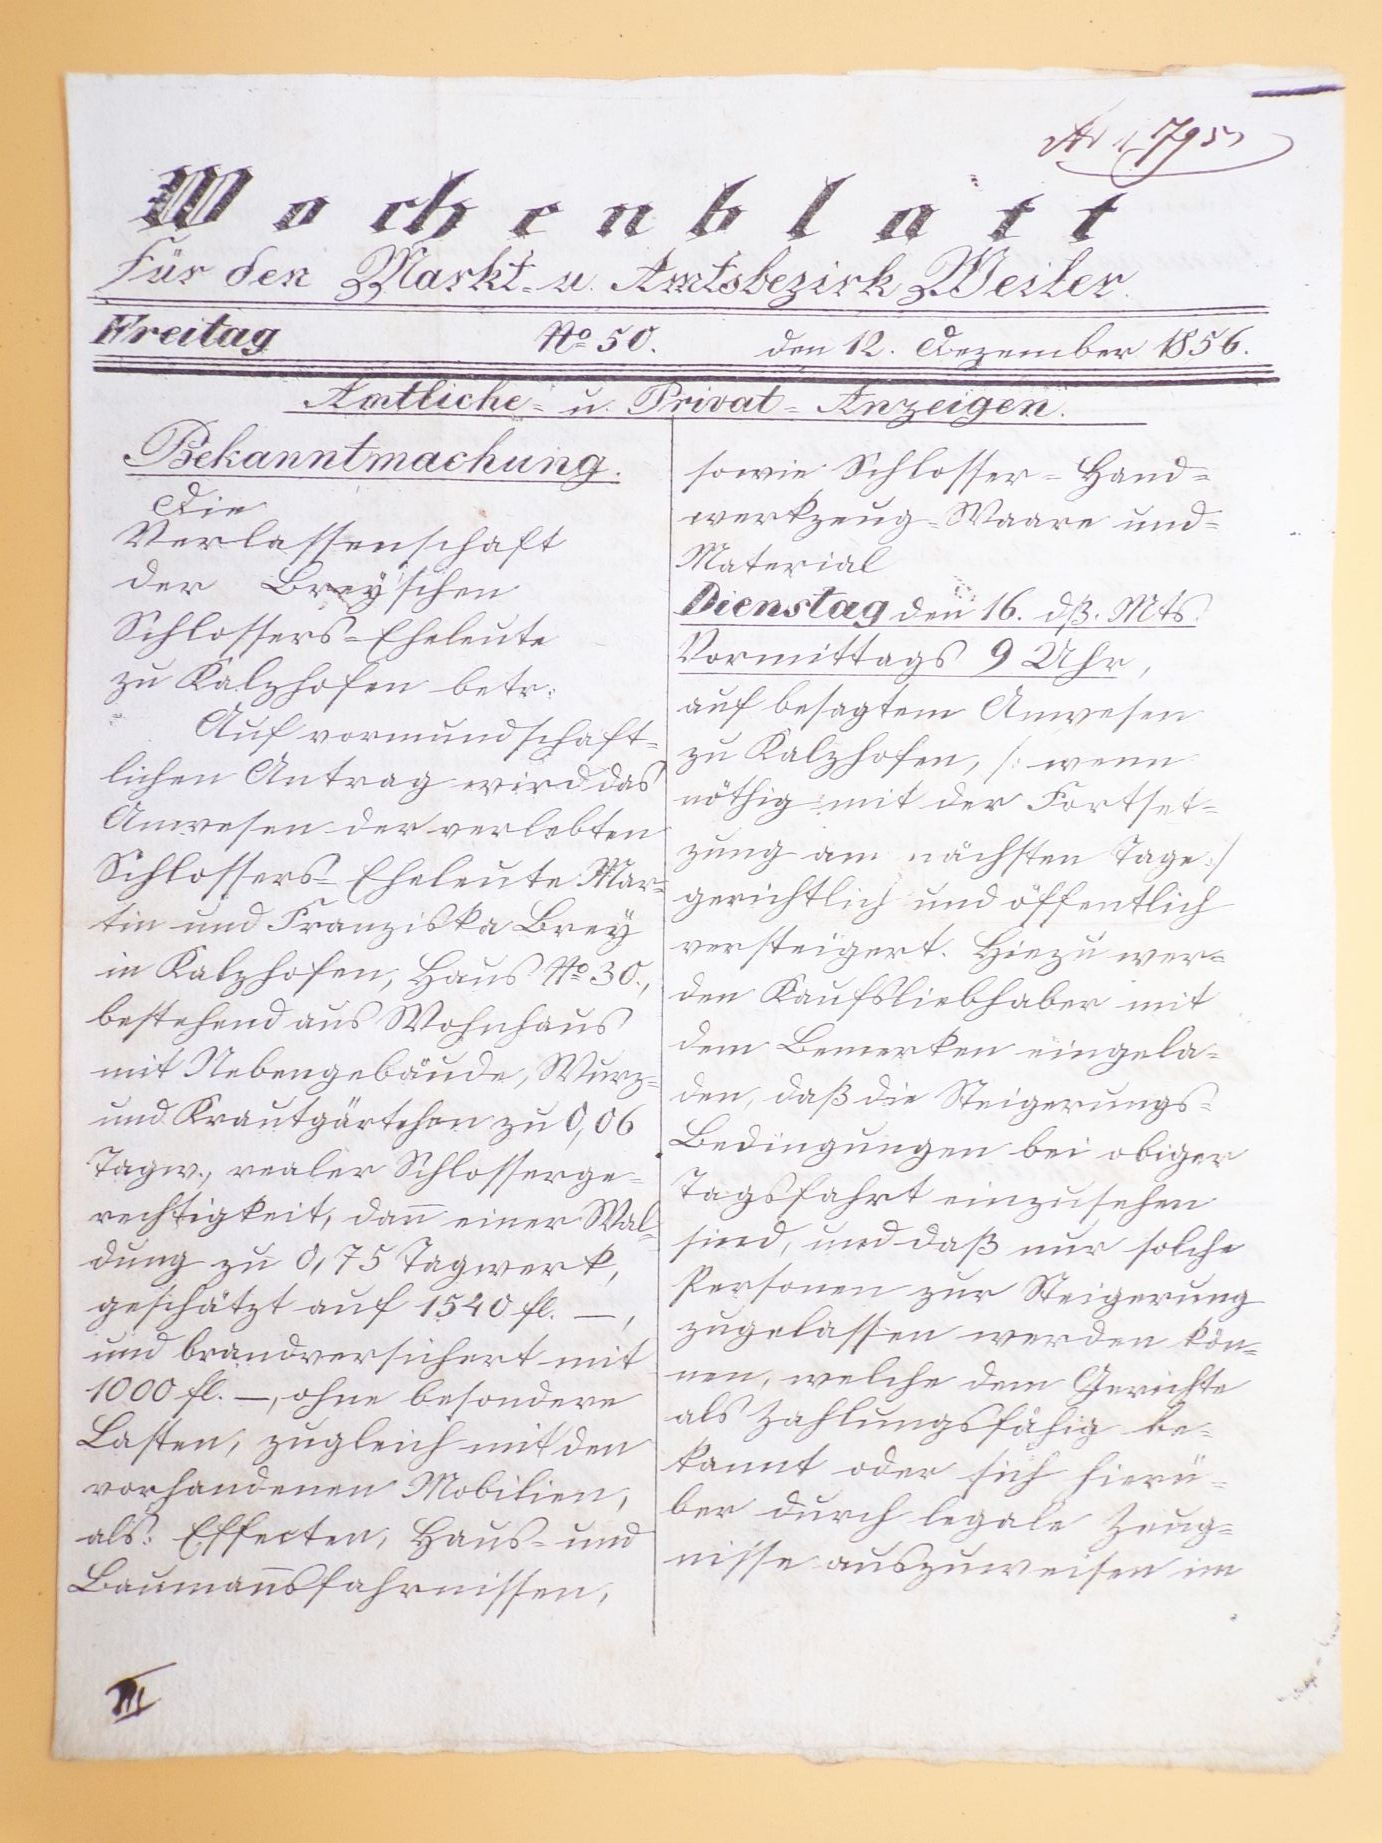 Wochenblatt
Für den Markt- u. Amtsbezirk Weiler.
Freitag No 50. den 12. Dezember 1856.
Amtliche- u. Privat-Anzeigen.
Bekanntmachung.
Die
Verlassenschaft
der Brey'schen
Schlossers-Eheleute
zu Kalzhofen betr:
Auf vormundschaft-
lichen Antrag wird das
Anwesen der verlebten
Schlossers-Eheleute Mar-
tin und Franziska Brey
in Kalzhofen, Haus No 30.,
bestehend aus Wohnhaus
mit Nebengebäude, Wurz-
und Krautgärtchen zu 0,06
Tagw., realer Schlosserge-
rechtigkeit, dan̅ einer Wal-
dung zu 0,75 Tagwerk,
geschätzt auf 1540 fl. —,
und brandversichert mit
1000 fl. —, ohne besondere
Lasten, zugleich mit den
vorhandenen Mobilien,
als: Effecten, Haus- und
Bauman̅sfahrnissen,
sowie Schlosser-Hand-
werkzeug-Waare und-
Material
Dienstag den 16. dß. Mts.
Vormittags 9 Uhr,
auf besagtem Anwesen
zu Kalzhofen, /: wenn
nöthig mit der Fortset-
zung am nächsten Tage :/
gerichtlich und öffentlich
versteigert. Hiezu wer-
den Kaufsliebhaber mit
dem Bemerken eingela-
den, daß die Steigerungs-
Bedingungen bei obiger
Tagsfahrt einzusehen
sind, und daß nur solche
Personen zur Steigerung
zugelassen werden kön-
nen, welche dem Gerichte
als zahlungsfähig be-
kannt oder sich hierü-
ber durch legale Zeug-
nisse auszuweisen im
III